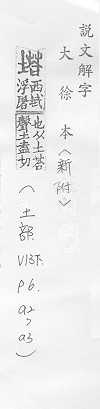 說文解字
大徐本〈新附〉
塔 西域浮屠也从土荅聲土盍切
(土部.
V13下
p6.
a2
a3)